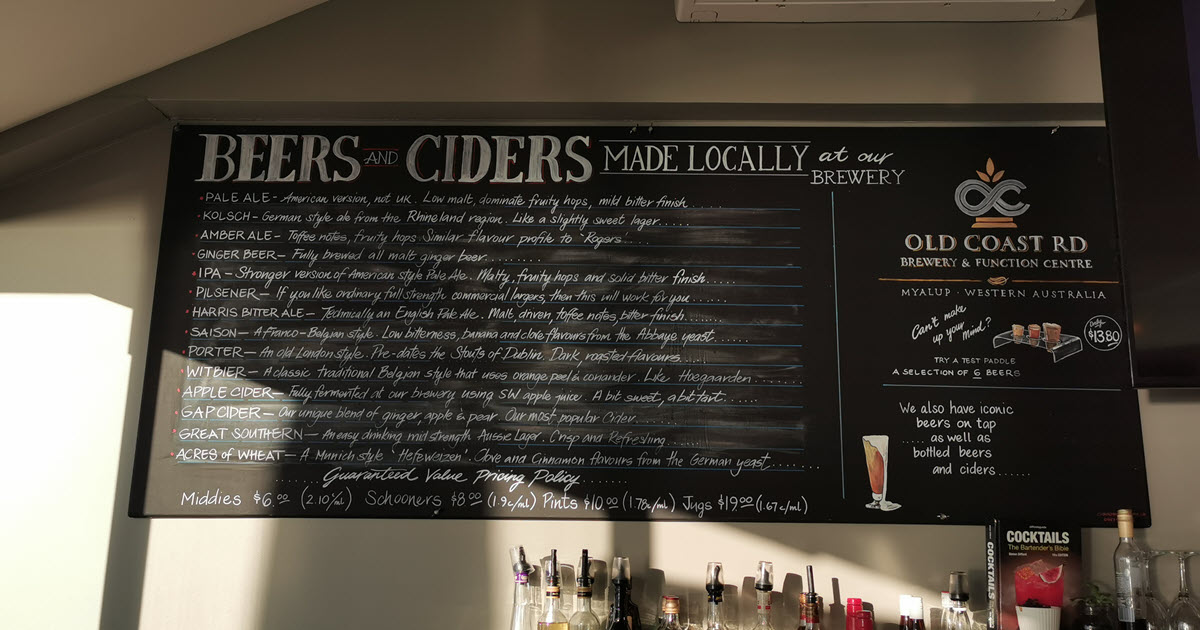 BEERS AND CIDERS MADE LOCALLY at our BREWERY
PALE ALE - American version, not UK. Low malt, dominate fruity hops, mild bitter finish.....
KOLSCH - German style ale from the Rhineland region. Like a slightly sweet lager......
AMBER ALE - Toffee notes, fruity hops. Similar flavour profile to 'Rogers'....
GINGER BEER - Fully brewed all malt ginger beer.........
IPA - Stronger version of American style Pale Ale. Malty, fruity hops and solid bitter finish.....
PILSENER - If you like ordinary full strength commercial largers, then this will work for you......
HARRIS BITTER ALE - Technically an English Pale Ale. Malt, driven, toffee notes, bitter finish.....
SAISON - A Franco-Belgian style. Low bitterness, banana and clove flavours from the Abbaye yeast.....
PORTER - An old London style. Pre-dates the Stouts of Dublin. Dark, roasted flavours.....
WITBIER - A classic traditional Belgian style that uses orange peel & coriander. Like Hoegaarden........
APPLE CIDER - Fully fermented at our brewery using SW apple juice. A bit sweet, a bit tart......
GAP CIDER - Our unique blend of ginger, apple & pear. Our most popular Cider.....
GREAT SOUTHERN - An easy drinking mid strength Aussie Lager. Crisp and Refreshing.....
ACRES of WHEAT - A Munich style 'Hefeweizen'. Clove and Cinnamon flavours from the German yeast........
Guaranteed Value Pricing Policy
Middies $6.00 (2.10c/ml) Schooners $8.00 (1.9c/ml) Pints $10.00 (1.78c/ml) Jugs $19.00 (1.67c/ml)
OLD COAST RD
BREWERY & FUNCTION CENTRE
MYALUP · WESTERN AUSTRALIA
Can't make
up your mind?
only
$13.80
TRY A TEST PADDLE
A SELECTION OF 6 BEERS
We also have iconic
beers on tap
..... as well as
bottled beers
and ciders.....
COCKTAILS
COCKTAILS
The Bartender's Bible